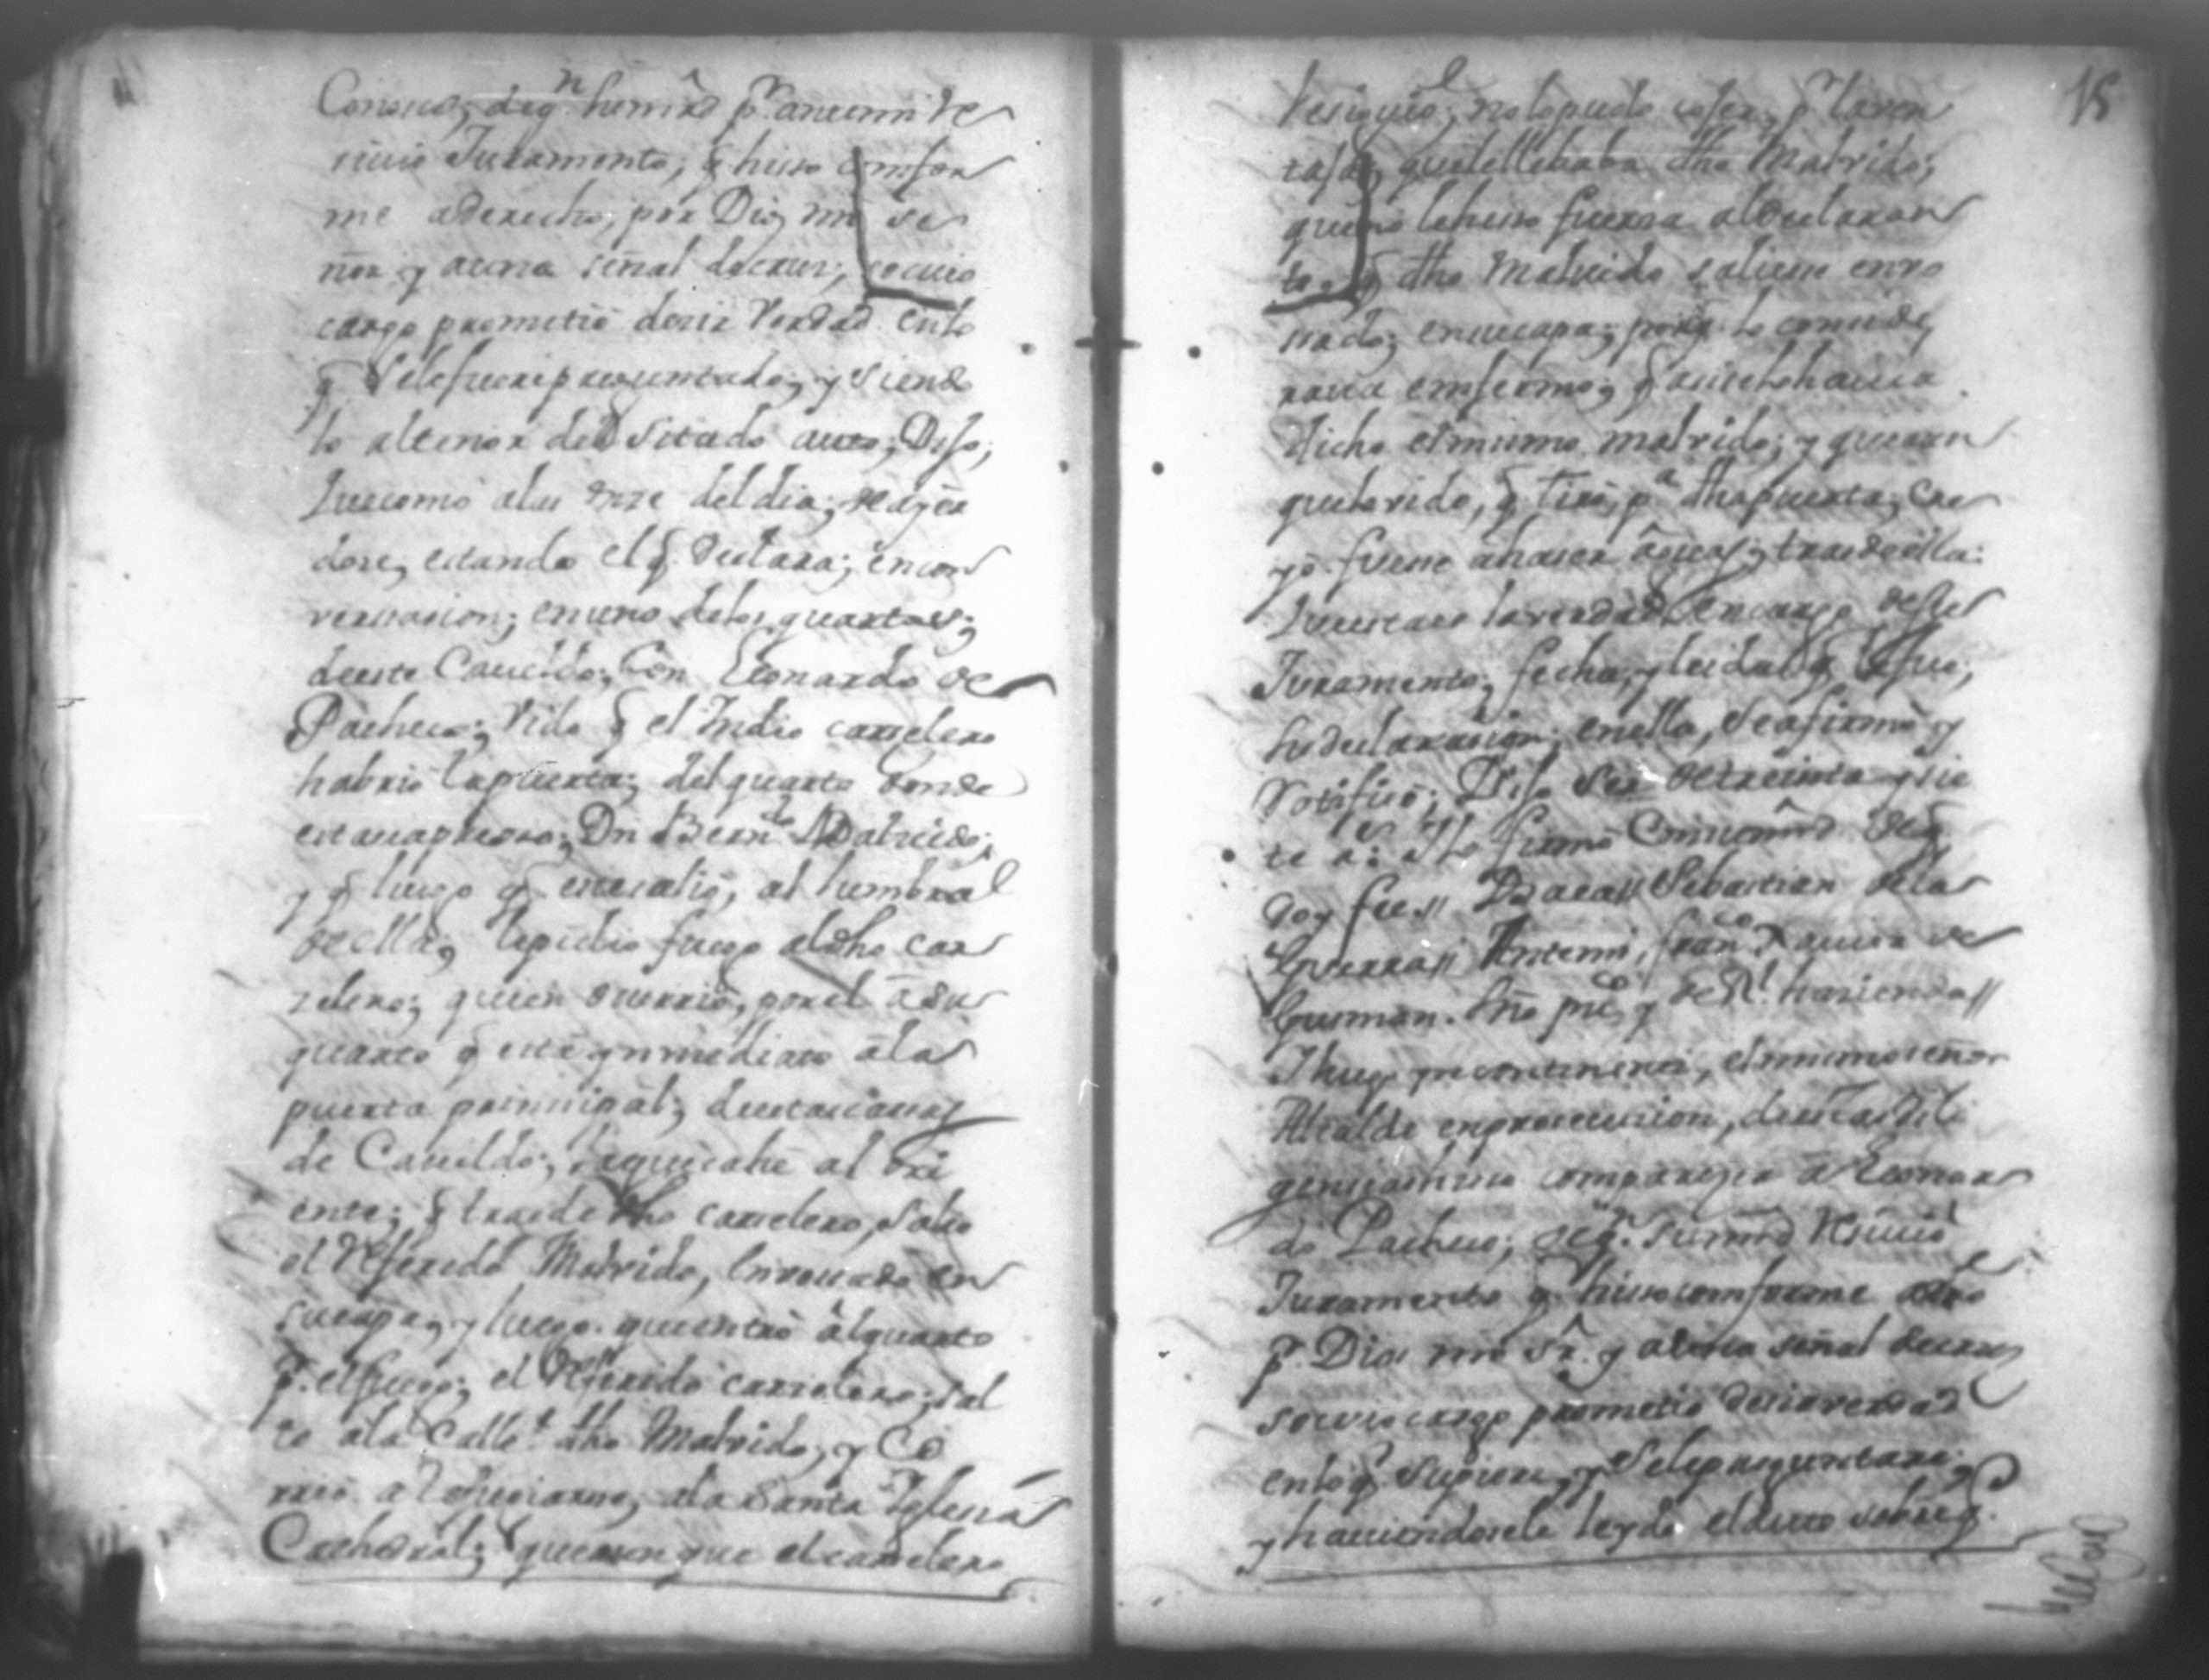 Conosco; de q.n su mrd p.r ante mi re
civio Juramento, q̃ hiso comfor
me a derecho, por Dios nro Se
ñor y auna señal de crus, so cuio
cargo prometio desir Verdad en lo
q̃ Se le fuere preguntado; y siendo
lo al tenor del Sitado auto, Dijo,
Que como a las onze del dia, de ayer
dose, estando el q̃ Declara, en com
versasion, en uno de los quartos,
de este Cavildo, Con Leonardo de
Pacheco; Vido q̃ el Indio carselero
habrio la puerta, del quarto donde
estava preso, Dn Bern.do Madrido,
y q̃ luego q̃ este salio, al humbral
de ella, le pidio fuego al dho car
selero; quien ocurrio, por el â su
quarto q̃ está ynmediato â la
puerta prinsipal, de estas casas
de Cavildo, la que cahe al ori
ente; q̃ tras de dho carselero, salio
el Referido Madrido, Enrosado en
su capa, y luego que entró âl quarto
p.r el fuego, el Referido carselero, sal
to a la Calle dho Madrido, y Co
rrió a Refugiarse, a la Santa Iglesia
Cathedral; que aunque el carselero
15
le siguió, no lo pudo coser, p.r la ven
taja, que le llebaba dho Madrido;
que no le hiso fuersa al Declaran
te, q̃ dho Madrido saliese enro
sado, en su capa, porq̃ lo conside
rava emfermo, q̃ asi se lo havia
dicho el mismo Madrido; y que aun
que lo vido, q̃ tiró, p.a dha puerta, cre
yó fuese a haser âguas, tras de ella:
Que esta es la verdad en cargo de su
Juramento, fecho, y leida q̃ le fue,
su declarasion, en ella, Se afirmó y
Ratificó; Dijo Ser de treinta y sie
te a.s y lo firmó Con su mrd de q̃
Doy fee// Sebastian de la
Guerra// Antemi, Fran.co Xavier de
Gusman. Sño pu.co y de R.l hazienda//
Y luego yncontinenti, el mismo señor
Alcalde en prosecusion, de estas dili
gensias hiso comparezer a Leonar
do Pacheco, de q.n su mrd Resivió
Juramento q̃ hiso comforme a dro
p.r Dios nro S.r y a una señal de crus
so cuio cargo prometio desir verdad
en lo q̃ Supiere, y Se le preguntare,
y haviendosele leydo el auto sobre q̃